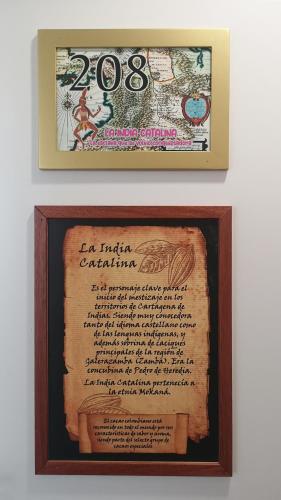 208
LA INDIA CATALINA
La India
Catalina
Es el personaje clave para el
inicio del mestizaje en los
territorios de Cartagena de
Indias. Siendo muy conocedora
tanto del idioma castellano como
de las lenguas indígenas, y
además sobrina de caciques
principales de la región de
Galerazamba (Zamba). Era la
concubina de Pedro de Heredia.
La India Catalina pertenecía a
la etnia Mokaná.
El cacao colombiano está
reconocido en todo el mundo por sus
características de sabor y aroma,
siendo parte del selecto grupo de
cacaos especiales.